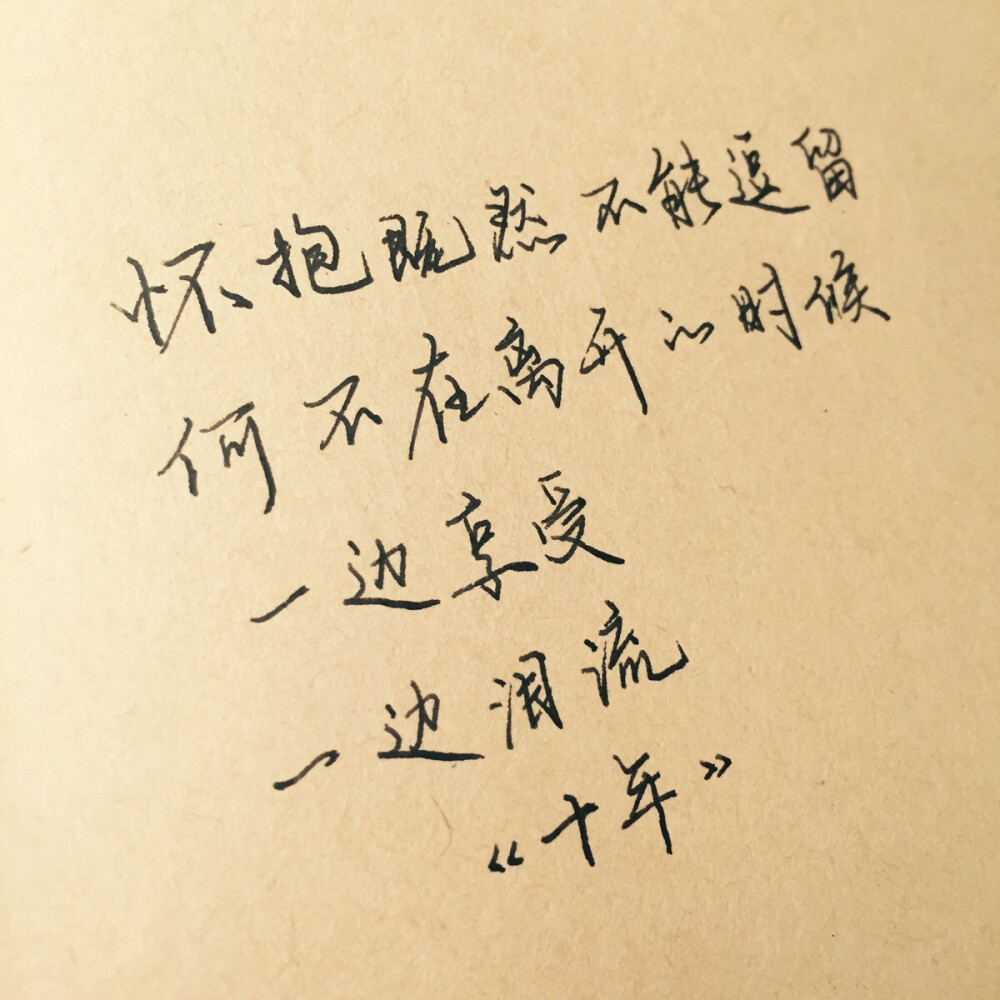 怀抱既然不能逗留
何不在离开的时候
一边享受
一边泪流
《十年》